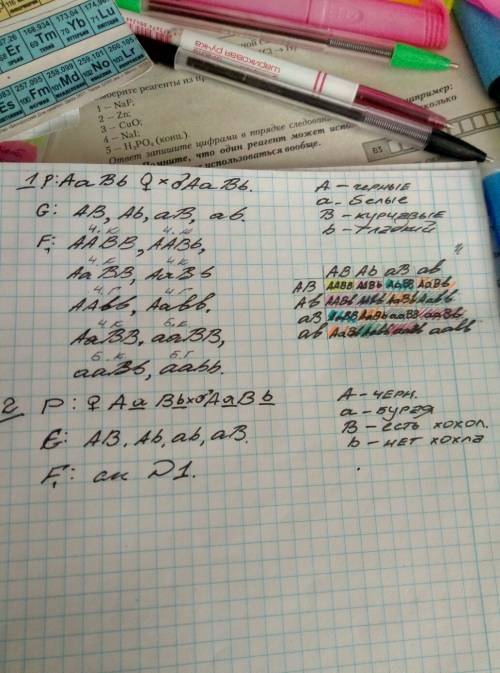 Er Tm Yb Lu
Es Fm Md No Lr
шариковая ручка
1 — NaF;
2 — Zn;
3 — CuO;
4 — NaI;
5 — H₃PO₄ (конц.).
Ответ запишите цифрами в порядке
что один реагент может
использоваться вообще.
В3
1 P: AaBb ♀ × ♂ AaBb.
G: AB, Ab, aB, ab.
ч.к ч.к
F₁: AABB, AABb,
ч.к ч.к
AaBB, AaBb
ч.г ч.г
AAbb, Aabb.
ч.к б.к
AaBB, aaBB,
б.к б.г
aaBb, aabb.
A - черные
a - белые
B - курчавые
b - гладкий
AB Ab aB ab
AB AABB AABb AaBB AaBb
Ab AABb AAbb AaBb Aabb
aB AaBB AaBb aaBB aaBb
ab AaBb Aabb aaBb aabb
2 P: ♀ AaBb × ♂ AaBb
G: AB, Ab, ab, aB.
F₁: см №1.
A - черн.
a - бурая
B - есть хохол.
b - нет хохла